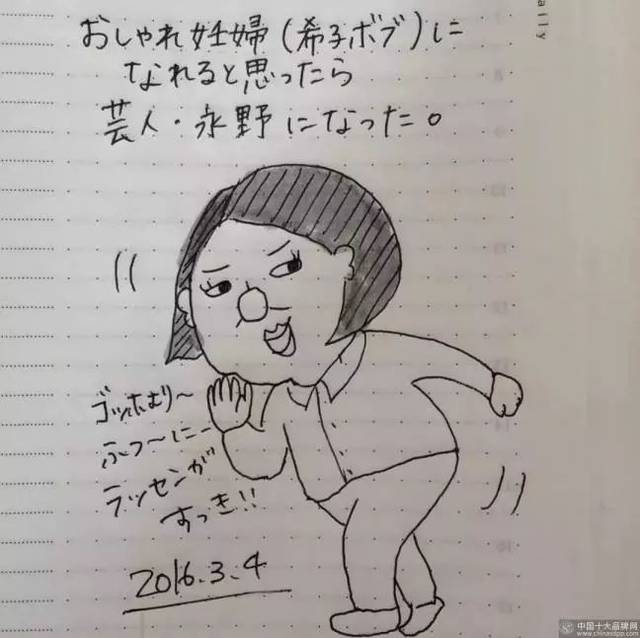 ally
おしゃれ妊婦(希子ボブ)に
なれると思ったら
芸人・永野になった。
ゴッホむり〜
ふつ〜に
ラッセンが
すっき!!
2016.3.4
中国十大品牌网
www.chinasspp.com